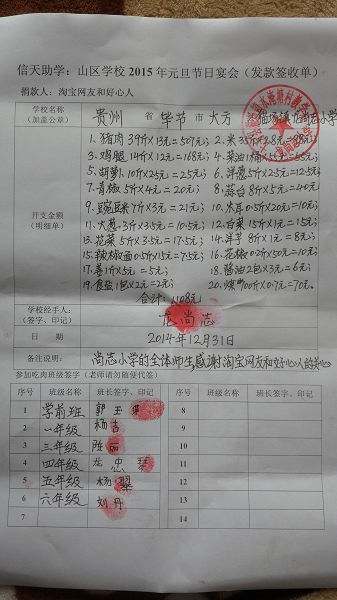 信天助学：山区学校2015年元旦节日宴会（发款签收单）
捐款人：淘宝网友和好心人
学校名称
（加盖公章）
贵州 省 毕节 市 大方
开支金额
（明细单）
1、猪肉39斤x13元=507元；2、米35斤x2.8元=98元；
3、鸡腿14斤x12元=168元；4、菜油1桶x55元=55元；
5、胡萝卜10斤x2.5元=25元；6、洋葱5斤x2.5元=12.5元；
7、青椒5斤x4元=20元；8、蒜台8斤x5元=40元；
9、豌豆米7斤x3元=21元；10、木耳0.5斤x20元=10元；
11、大葱3斤x3.5元=10.5元；12、白菜15斤x1元=15元；
13、花菜5斤x3.5元=17.5元；14、洋芋8斤x1元=8元；
15、辣椒面0.5斤x15元=7.5元；16、花椒0.2斤x50元=10元；
17、姜1斤x5元=5元；18、酱油2包x3元=6元；
19、食盐1包x2元=2元；20、煤100斤x0.7元=70元。
合计：1108元
学校经手人：
（签字、印记）
龙尚志
日 期
2014年12月31日
备注说明：
尚志小学的全体师生感谢淘宝网友和好心人的关心
参加吃肉班级签字（老师请勿随便代签）
序号 班级名称 班长签字、印记 序号 班级名称 班长签字、印记
1 学前班 郭玉 8
2 一年级 杨吉 9
3 三年级 陈丽 10
4 四年级 龙忠琴 11
5 五年级 杨翠 12
6 六年级 刘丹 13
7 14